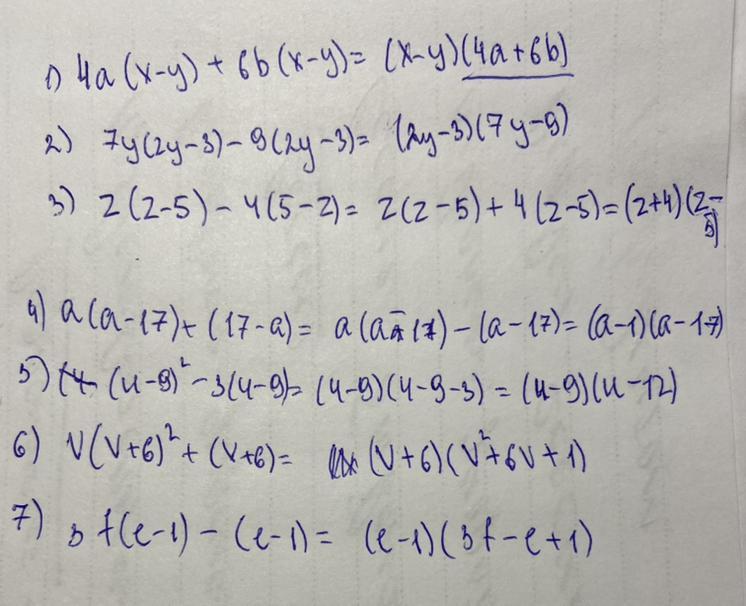 1) 4a(x-y) + 6b(x-y) = (x-y)(4a+6b)
2) 7y(2y-3) - 9(2y-3) = (2y-3)(7y-9)
3) z(z-5) - 4(5-z) = z(z-5) + 4(z-5) = (z+4)(z-5)
4) a(a-17) + (17-a) = a(a-17) - (a-17) = (a-1)(a-17)
5) (u-9)² - 3(u-9) = (u-9)(u-9-3) = (u-9)(u-12)
6) v(v+6)² + (v+6) = (v+6)(v²+6v+1)
7) 3f(e-1) - (e-1) = (e-1)(3f-e+1)